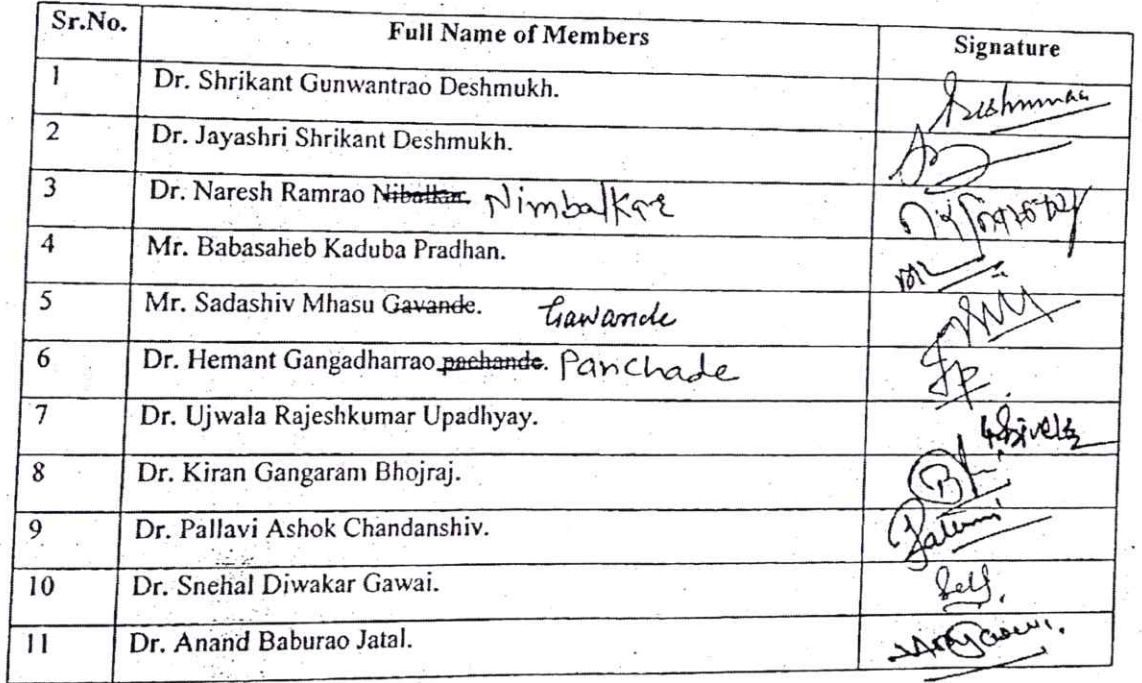 Sr.No. Full Name of Members Signature
1 Dr. Shrikant Gunwantrao Deshmukh.
2 Dr. Jayashri Shrikant Deshmukh.
3 Dr. Naresh Ramrao Nibalkar. Nimbalkar
4 Mr. Babasaheb Kaduba Pradhan.
5 Mr. Sadashiv Mhasu Gavande. Gawande
6 Dr. Hemant Gangadharrao pachande. Panchade
7 Dr. Ujwala Rajeshkumar Upadhyay.
8 Dr. Kiran Gangaram Bhojraj.
9 Dr. Pallavi Ashok Chandanshiv.
10 Dr. Snehal Diwakar Gawai. Self.
11 Dr. Anand Baburao Jatal.